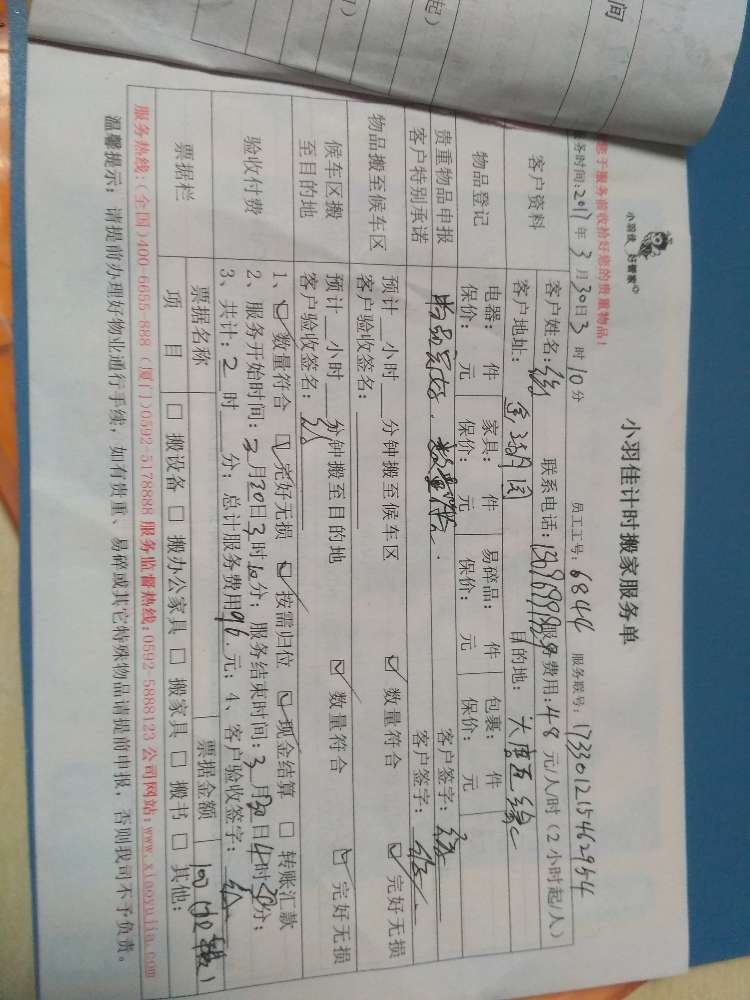 间
起)
小羽佳 好管家
小羽佳计时搬家服务单
您于服务前收拾好您的贵重物品!
务时间:2017年3月30日3时10分 员工工号:6844 服务联号:173301215462954
客户资料
客户姓名: 联系电话: 服务费用:48元/人时(2小时起/人)
客户地址: 目的地:
物品登记
电器: 件 家具: 件 易碎品: 件 包裹: 件
保价: 元 保价: 元 保价: 元 保价: 元
贵重物品申报 物品完好. 数量符合. 客户签字:
客户特别承诺 客户签字:
物品搬至候车区
预计 小时 分钟搬至候车区 数量符合 完好无损
客户验收签名:
候车区搬至目的地
预计 小时 分钟搬至目的地 数量符合 完好无损
客户验收签名:
验收付费
1、 数量符合 完好无损 按需归位 现金结算 转账汇款
2、服务开始时间:3月30日3时10分;服务结束时间:3月30日4时50分;
3、共计:2时 分;总计服务费用96元;4、客户验收签字:
票据栏
票据名称 票据金额
项目 搬设备 搬办公家具 搬家具 搬书 其他:
服务热线:(全国)400-6655-888(厦门)0592-5178888 服务监督热线:0592-5888123 公司网站:www.xiaoyujia.com
温馨提示: 请提前办理好物业通行手续,如有贵重、易碎或其它特殊物品请提前申报,否则我司不予负责。